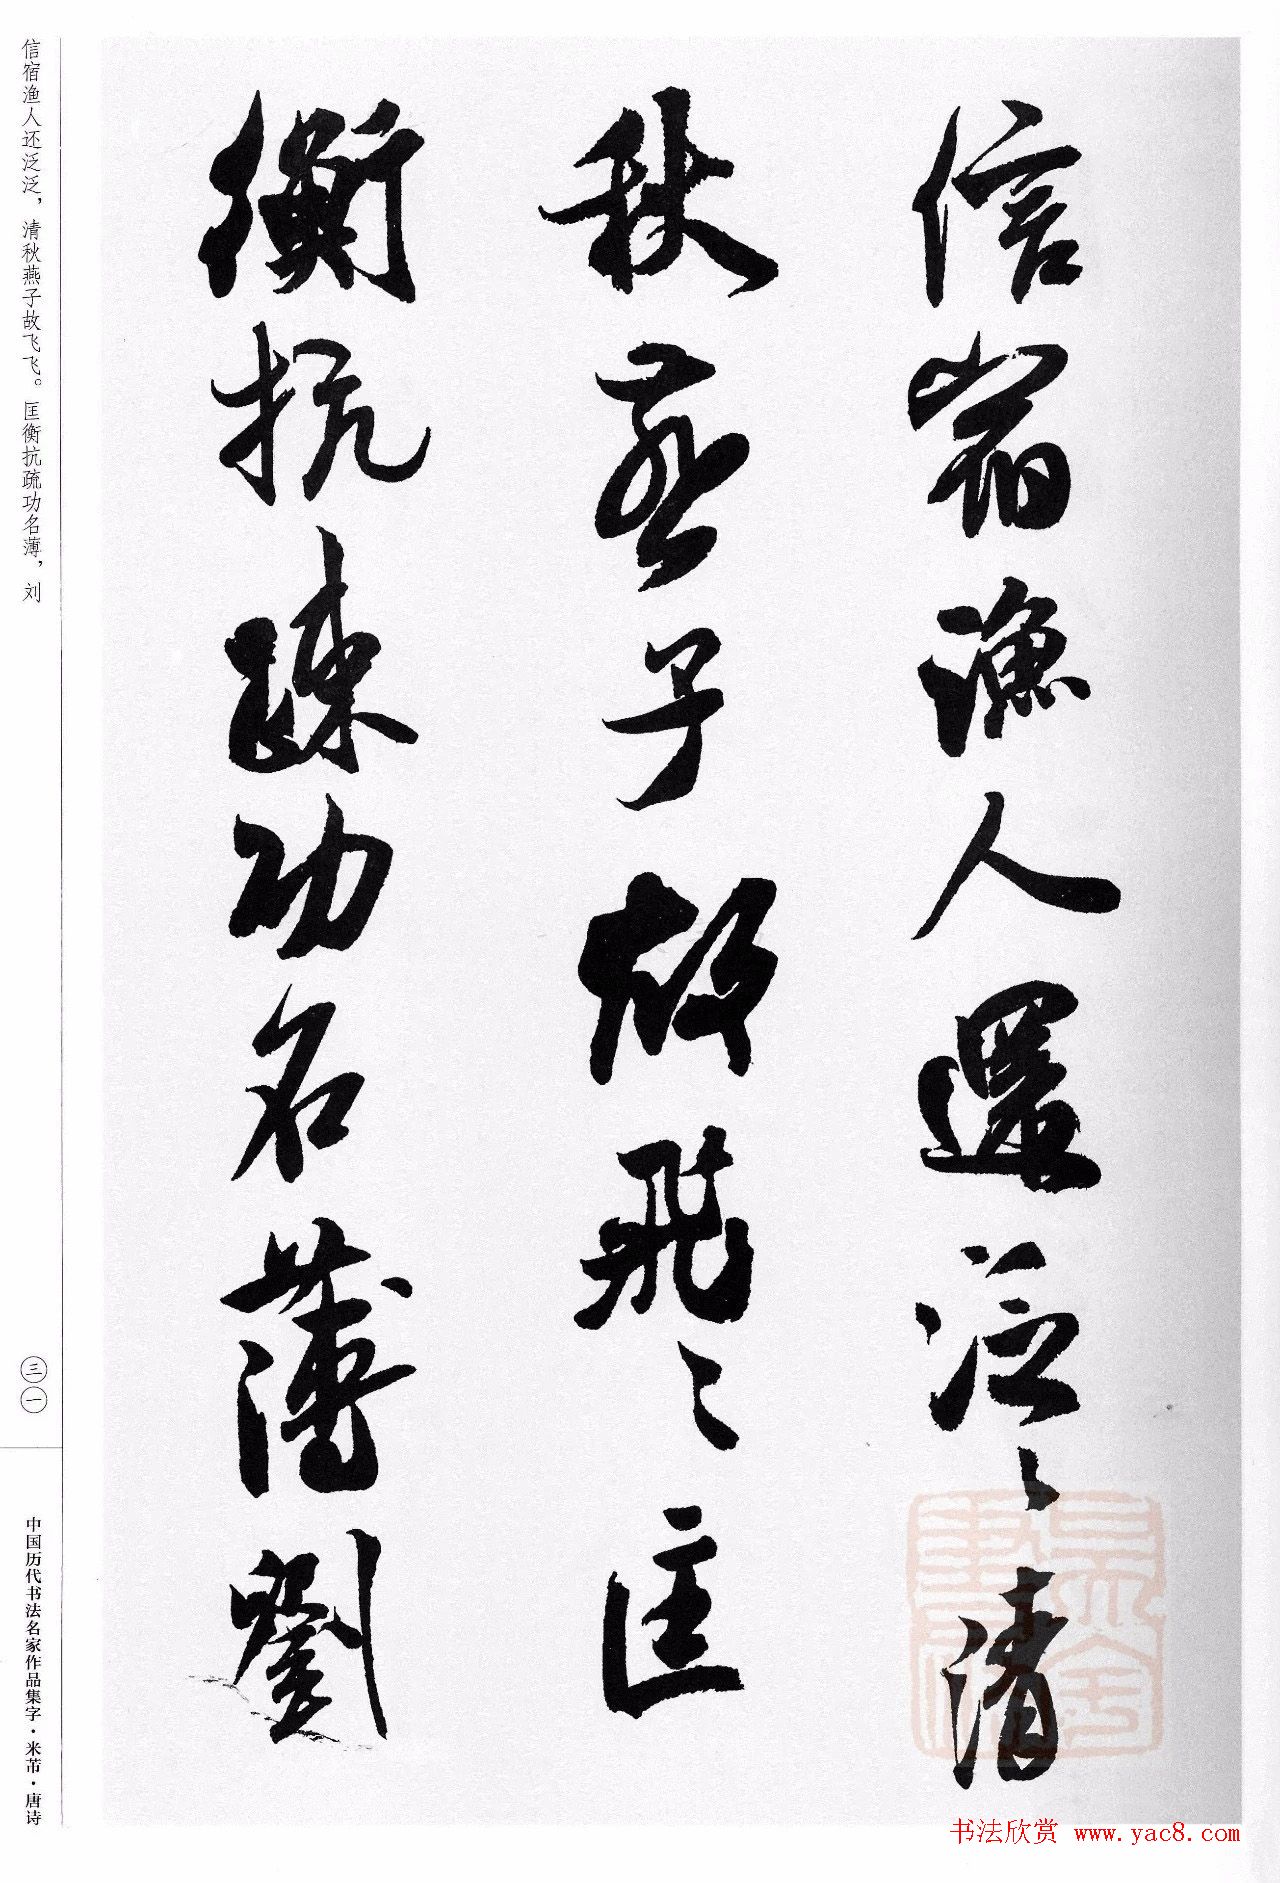 信宿漁人還泛〻清
秋燕子故飛〻匡
衡抗疎功名薄劉
信宿渔人还泛泛，清秋燕子故飞飞。匡衡抗疏功名薄，刘
三一
中国历代书法名家作品集字·米芾·唐诗
书法欣赏 www.yac8.com